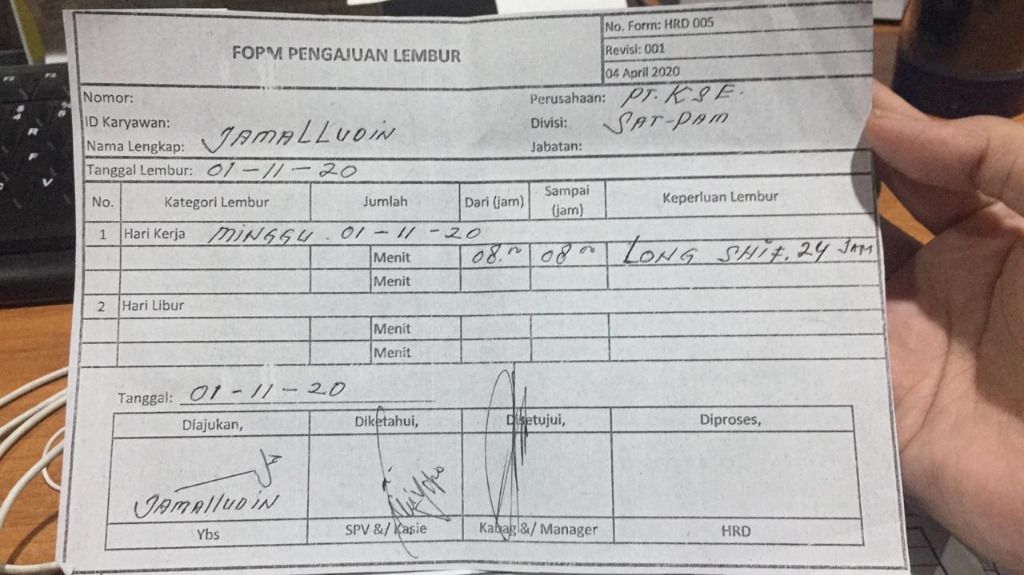 FOPM PENGAJUAN LEMBUR
No. Form: HRD 005
Revisi: 001
04 April 2020
Nomor:
Perusahaan: PT. KSE.
ID Karyawan:
Divisi: SAT-PAM
Nama Lengkap: JAMALLUDIN
Jabatan:
Tanggal Lembur: 01-11-20
No. Kategori Lembur Jumlah Dari (jam) Sampai (jam) Keperluan Lembur
1 Hari Kerja MINGGU. 01-11-20
Menit 08.00 08 00 LONG SHIF. 24 JAM
Menit
2 Hari Libur
Menit
Menit
Tanggal: 01-11-20
Diajukan, Diketahui, Disetujui, Diproses,
JAMAlluDIN
Ybs SPV &/ Kasie Kabag &/ Manager HRD